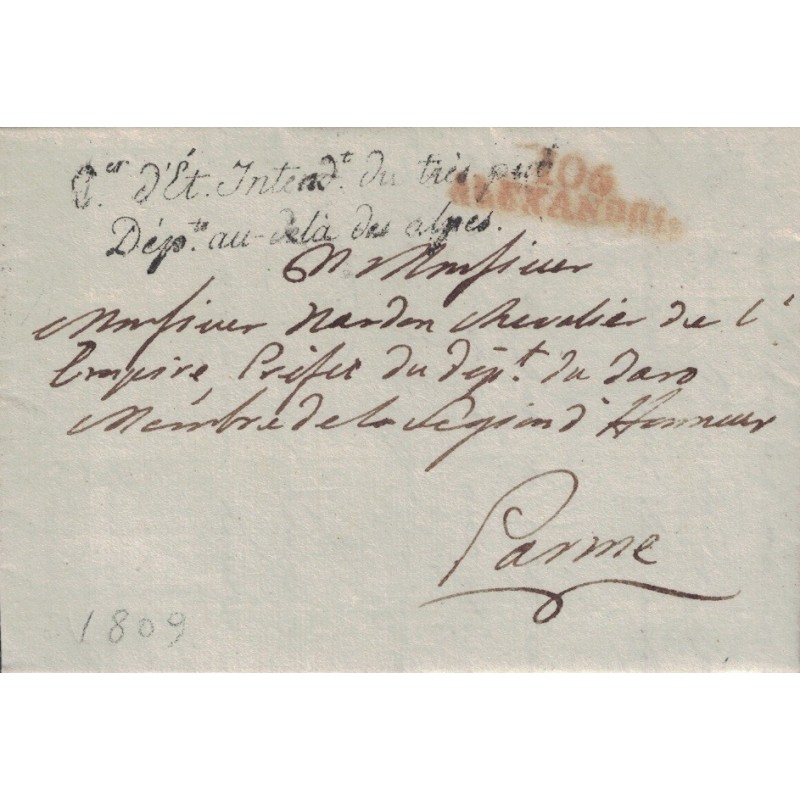 C.er d'Ét. Intend.t du très pub.
Dép.ts au-delà des alpes.
106
ALEXANDRIE
A Monsieur
Monsieur Nardon Chevalier de l'
Empire, Préfet du dép.t du Taro
Membre de la Légion d'Honneur
Parme
1809